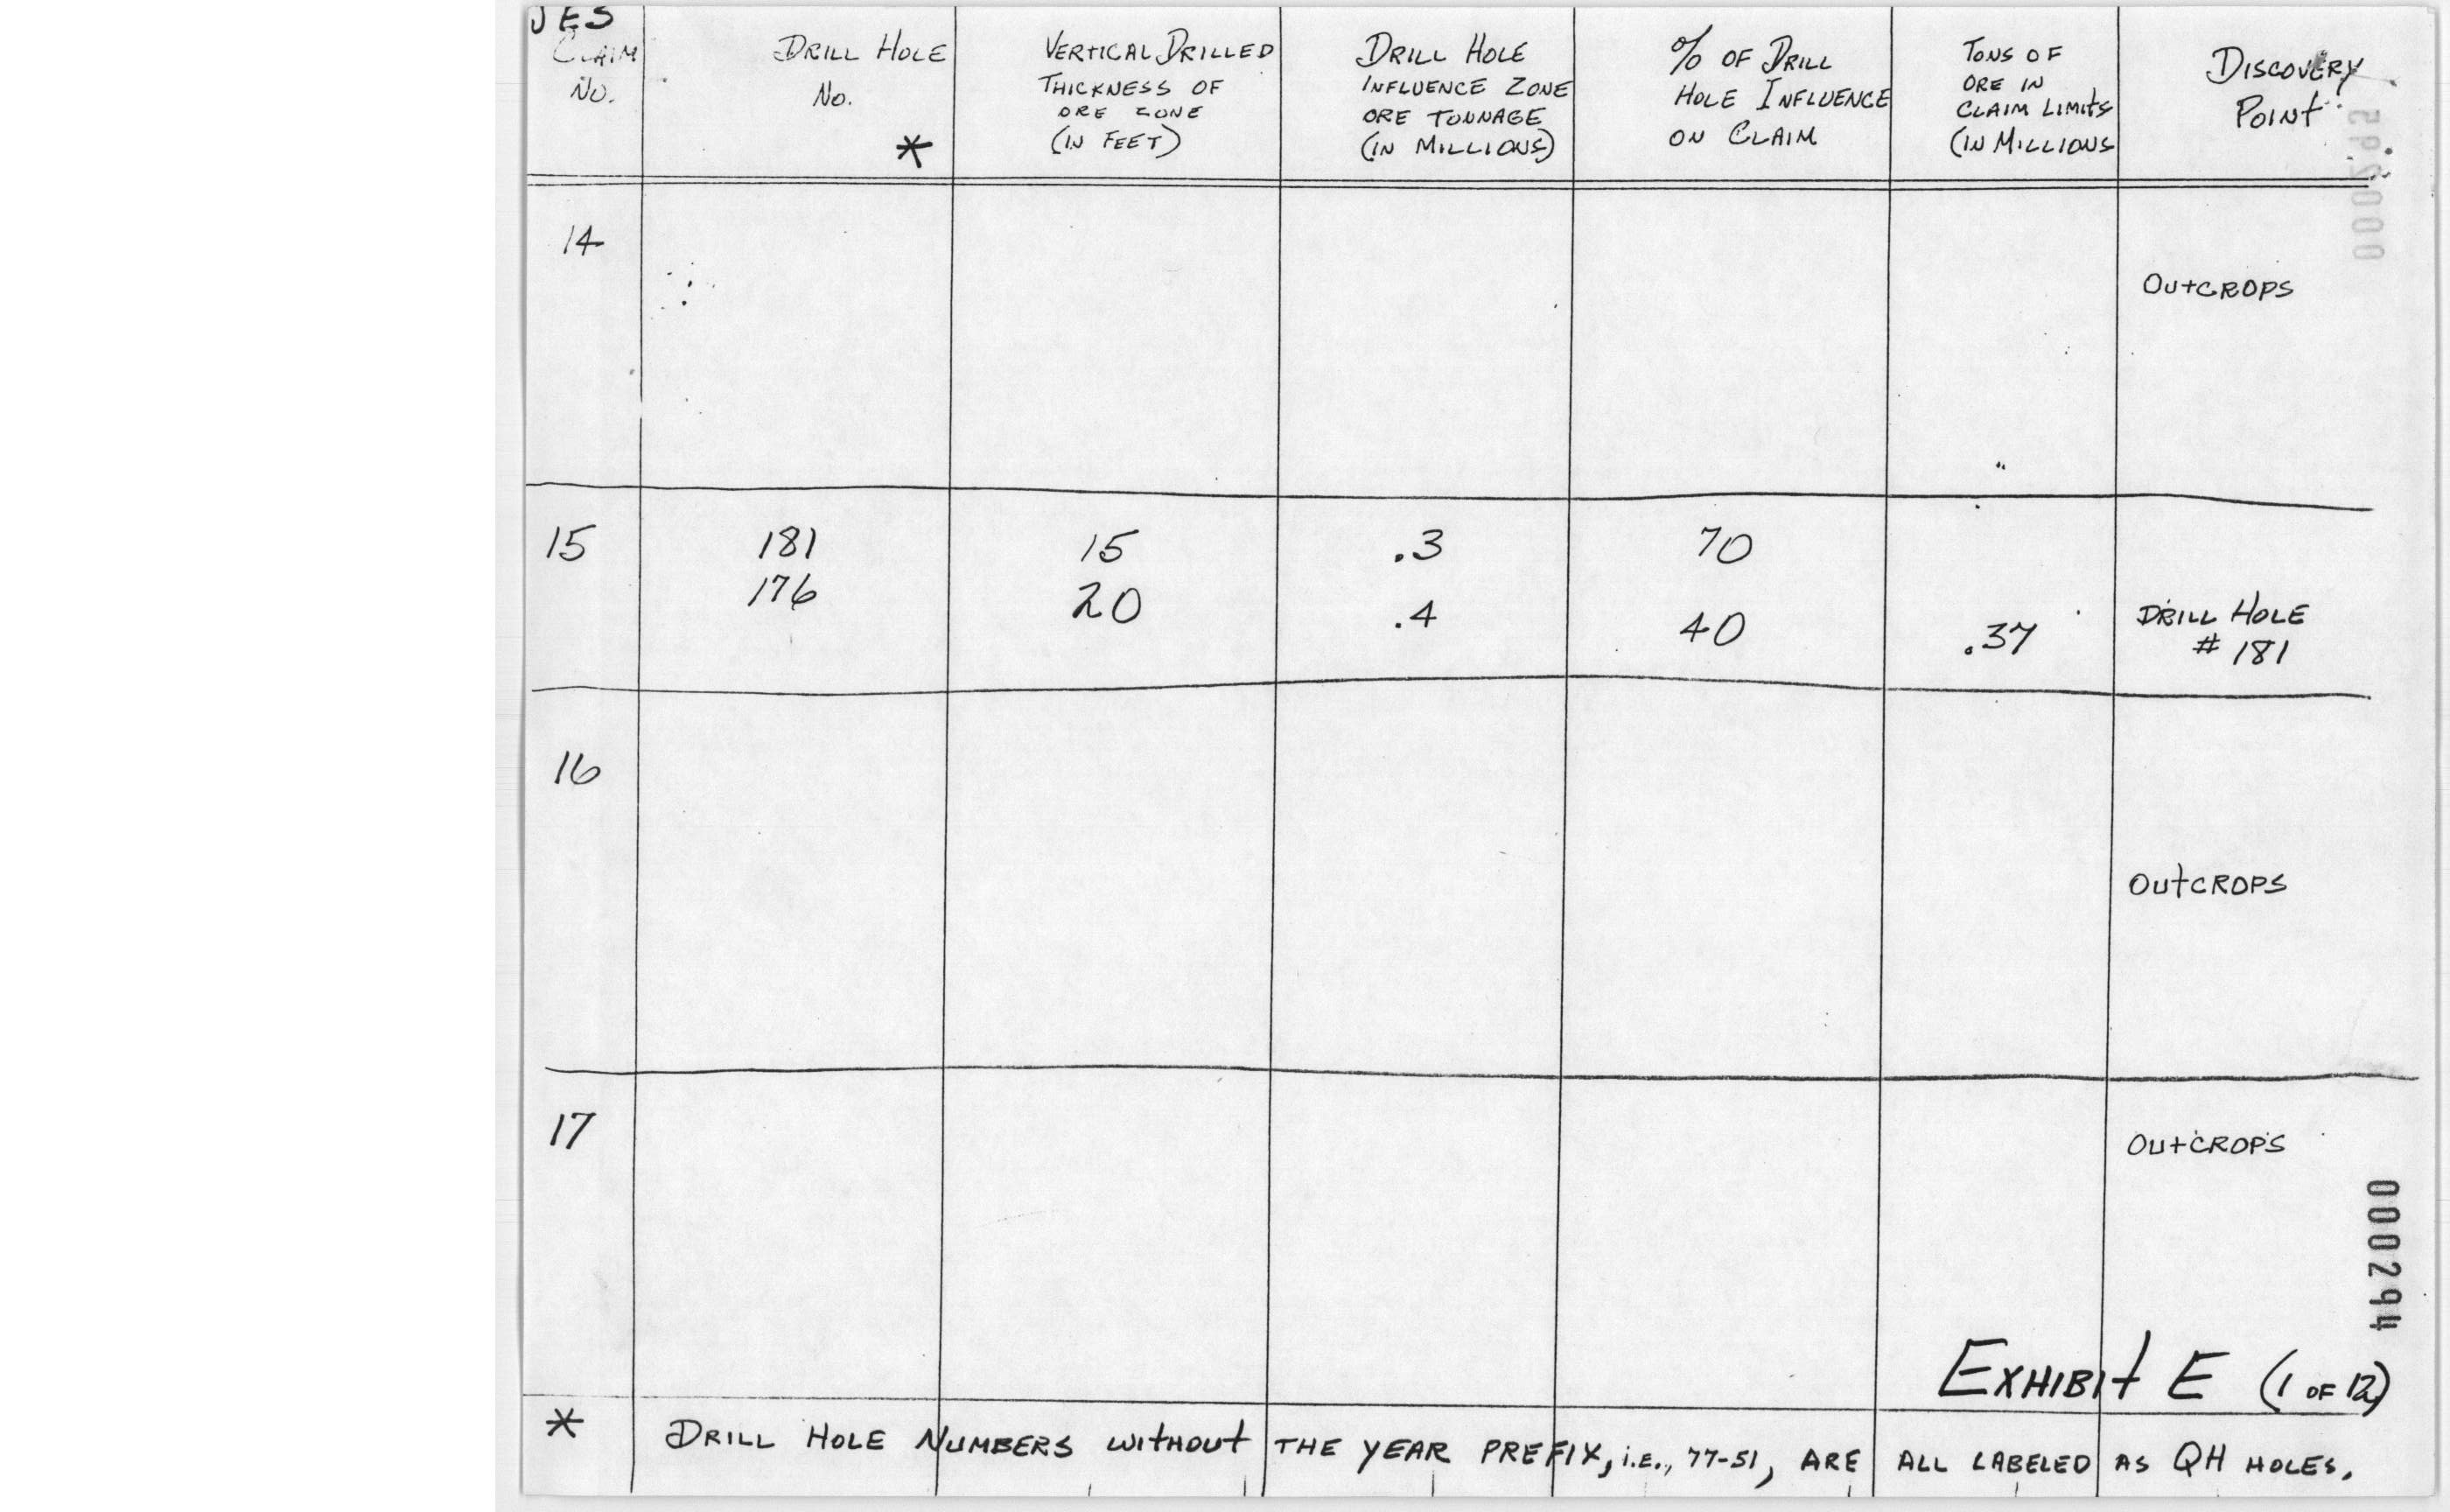 JES
CLAIM
No.
DRILL HOLE
No.
*
VERTICAL DRILLED
THICKNESS OF
ORE ZONE
(IN FEET)
DRILL HOLE
INFLUENCE ZONE
ORE TONNAGE
(IN MILLIONS)
% OF DRILL
HOLE INFLUENCE
ON CLAIM
TONS OF
ORE IN
CLAIM LIMITS
(IN MILLIONS
DISCOVERY
POINT
14
OUTCROPS
15
181
15
.3
70
176
20
.4
40
.37
DRILL HOLE
# 181
16
OUTCROPS
17
OUTCROPS
000294
EXHIBIT E (1 OF 12)
* DRILL HOLE NUMBERS WITHOUT THE YEAR PREFIX, i.E., 77-51, ARE ALL LABELED AS QH HOLES.